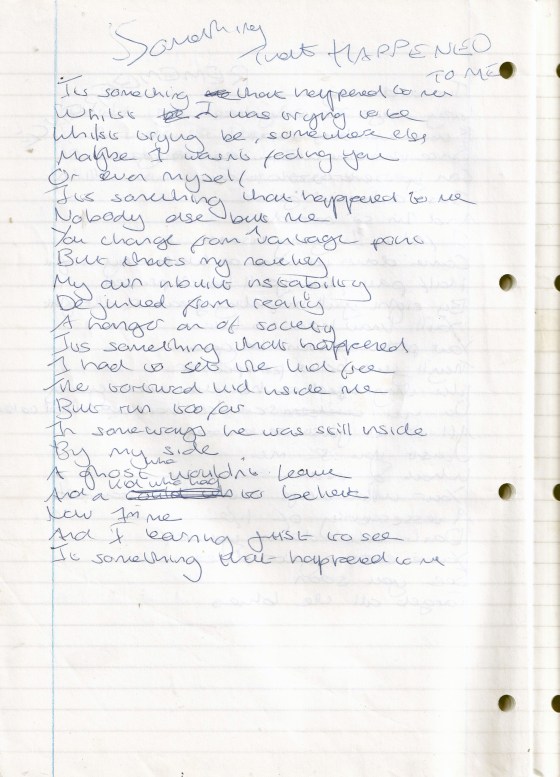 Something
That HAPPENED
TO ME
Its something that happened to me
Whilst I was trying to be
Whilst trying be, somewhere else
Maybe I wasnt fooling you
Or even myself
Its something that happened to me
Nobody else but me
You change from vantage point
But thats my
My own inbuilt instability
from reality
A hanger on of society
Its something that happened
I had to set the kid free
The tortured kid inside me
But run too far
In someways he was still inside
By my side
A ghost who wouldnt leave
And a kid who had to believe
Now Im me
And I learning just to see
It something that happened to me